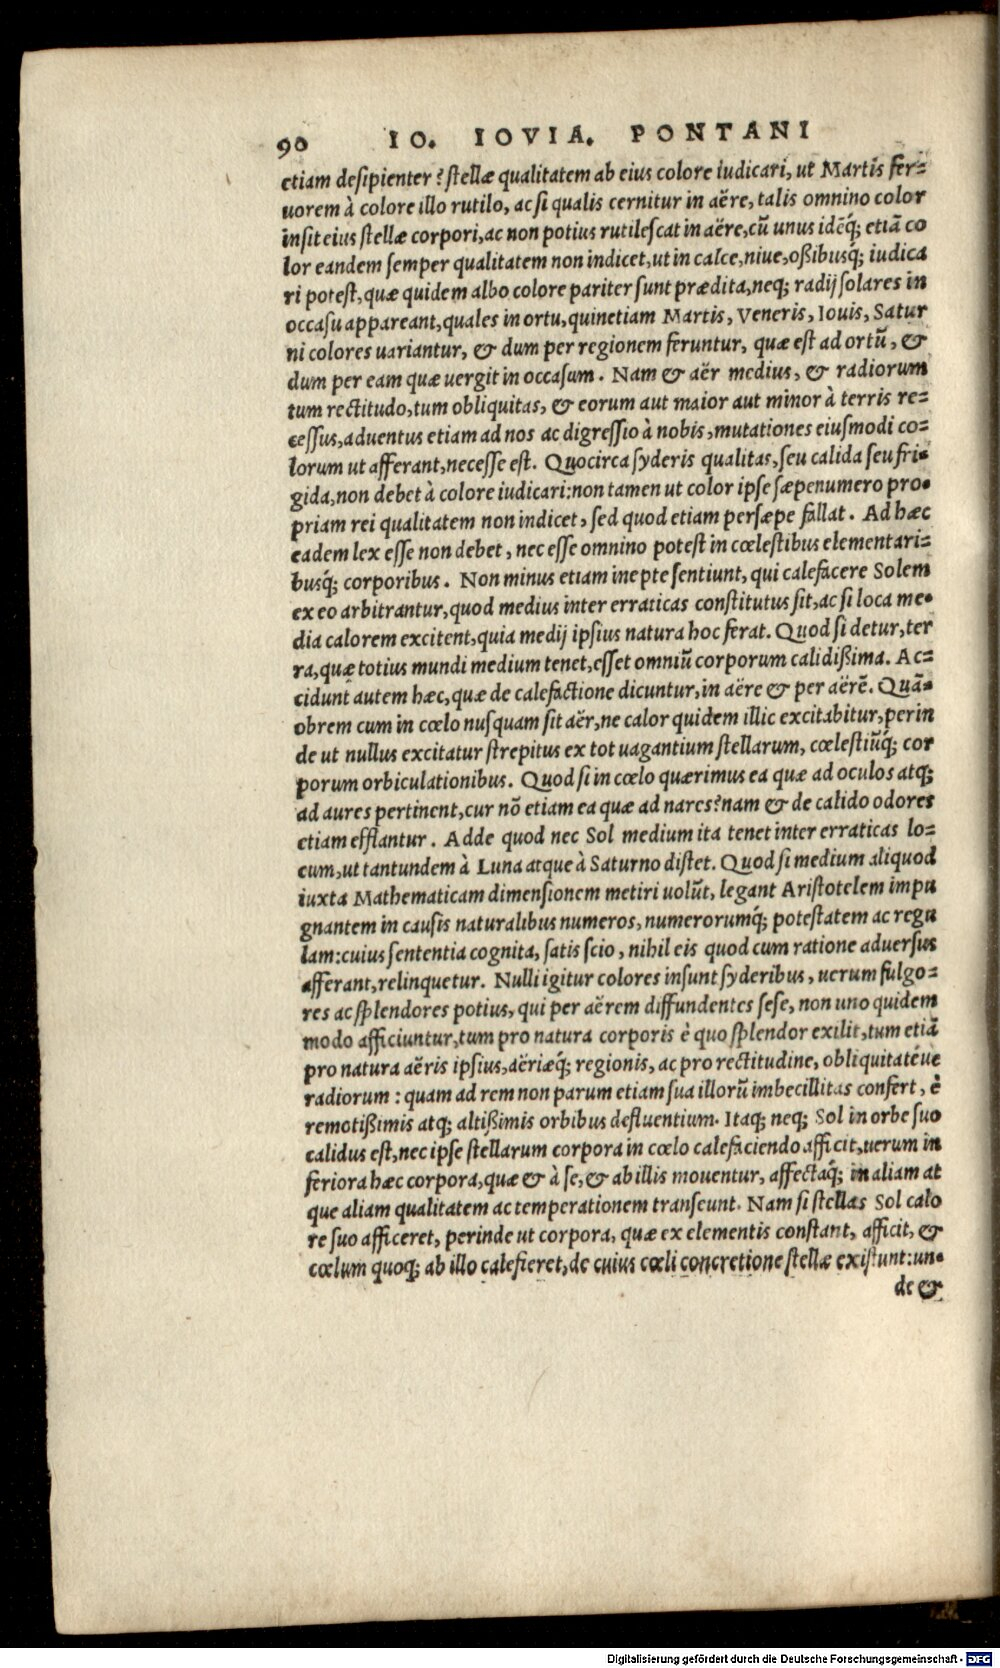 90 IO. IOVIA. PONTANI
etiam desipienter? stellæ qualitatem ab eius colore iudicari, ut Martis fer=
uorem à colore illo rutilo, ac si qualis cernitur in aëre, talis omnino color
insit eius stellæ corpori, ac non potius rutilescat in aëre, cũ unus idẽq́; etiã co
lor eandem semper qualitatem non indicet, ut in calce, niue, oßibusq́; iudica
ri potest, quæ quidem albo colore pariter sunt prædita, neq; radij solares in
occasu appareant, quales in ortu, quinetiam Martis, Veneris, Iouis, Satur
ni colores uariantur, & dum per regionem feruntur, quæ est ad ortũ, &
dum per eam quæ uergit in occasum. Nam & aër medius, & radiorum
tum rectitudo, tum obliquitas, & eorum aut maior aut minor à terris re=
cessus, aduentus etiam ad nos ac digressio à nobis, mutationes eiusmodi co=
lorum ut afferant, necesse est. Quocirca syderis qualitas, seu calida seu fri=
gida, non debet à colore iudicari: non tamen ut color ipse sæpenumero pro=
priam rei qualitatem non indicet, sed quod etiam persæpe fallat. Ad hæc
eadem lex esse non debet, nec esse omnino potest in cœlestibus elementari=
busq́; corporibus. Non minus etiam inepte sentiunt, qui calefacere Solem
ex eo arbitrantur, quod medius inter erraticas constitutus sit, ac si loca me=
dia calorem excitent, quia medij ipsius natura hoc ferat. Quod si detur, ter
ra, quæ totius mundi medium tenet, esset omniũ corporum calidißima. Ac=
cidunt autem hæc, quæ de calefactione dicuntur, in aëre & per aërẽ. Quã=
obrem cum in cœlo nusquam sit aër, ne calor quidem illic excitabitur, perin
de ut nullus excitatur strepitus ex tot uagantium stellarum, cœlestiũq́; cor
porum orbiculationibus. Quod si in cœlo quærimus ea quæ ad oculos atq;
ad aures pertinent, cur nõ etiam ea quæ ad nares? nam & de calido odores
etiam efflantur. Adde quod nec Sol medium ita tenet inter erraticas lo=
cum, ut tantundem à Luna atque à Saturno distet. Quod si medium aliquod
iuxta Mathematicam dimensionem metiri uolũt, legant Aristotelem impu
gnantem in causis naturalibus numeros, numerorumq́; potestatem ac regu
lam: cuius sententia cognita, satis scio, nihil eis quod cum ratione aduersus
afferant, relinquetur. Nulli igitur colores insunt syderibus, uerum fulgo=
res ac splendores potius, qui per aërem diffundentes sese, non uno quidem
modo afficiuntur, tum pro natura corporis è quo splendor exilit, tum etiã
pro natura aëris ipsius, aëriæq́; regionis, ac pro rectitudine, obliquitatéue
radiorum: quam ad rem non parum etiam sua illorũ imbecillitas confert, è
remotißimis atq; altißimis orbibus defluentium. Itaq; neq; Sol in orbe suo
calidus est, nec ipse stellarum corpora in cœlo calefaciendo afficit, uerum in
feriora hæc corpora, quæ & à se, & ab illis mouentur, affectaq́; in aliam at
que aliam qualitatem ac temperationem transeunt. Nam si stellas Sol calo
re suo afficeret, perinde ut corpora, quæ ex elementis constant, afficit, &
cœlum quoq; ab illo calefieret, de cuius cœli concretione stellæ existunt: un=
de &
Digitalisierung gefördert durch die Deutsche Forschungsgemeinschaft - DFG